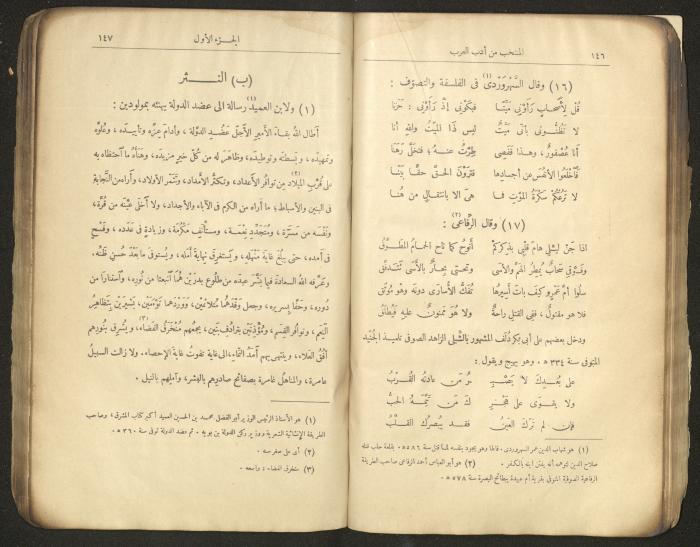 ١٤٦
المنتخب من أدب العرب
(١٦) وقال السَّهْرَوَرْدىّ (١) فى الفلسفة والتصوّف :
قُل لِأصحابٍ رَأَوْنى مَيْتًا فبَكَوْنى إذ رَأَوْنى : حَزَنا
لا تَظُنّونى بأنّى مَيِّتٌ ليس ذَا الميْتُ والله أنا
أنا عُصْفورٌ ، وهذا قَفَصى طِرْتُ عنه ؛ فتَخَلَّى رَهَنا
فاخلَعُوا الأنفُسَ عن أجسادِها فتَرَوْنَ الحقَّ حقًّا بيّنا
لا تَرُعْكُمْ سَكْرَةُ المَوْتِ فما هى الا بانتقالٍ من هُنا
(١٧) وقال الرِّفاعى : (٢)
اذا جَنّ ليلى هامَ قلبى بذكركمْ أنوحُ كما ناح الحَمامُ المُطَوَّقُ
وفَوْقى سَحابٌ يُمطِرُ الهمَّ والأسى وتحتى بِحارٌ بالأسى تَتَدفَّقُ
سلوا أمَّ عَمْرٍو كيف باتَ أسيرُها تُفَكُّ الأسارَى دونَه وهو مُوثَقُ
فلا هو مقتولٌ ، ففى القتلِ راحةٌ ولا هو ممنونٌ عليهِ فيُطلَقُ
ودخل بعضهم على أبى بكر دُلَف المشهور بالشِّبلى الزاهد الصوفى تلميذ الجُنَيد
المتوفى سنة ٣٣٤ ه ، وهو يهيج ويقول :
على بُعدِك لا يَصْبِرُ مَن عادتُه القُرْبُ
ولا يقوَى على هَجْرِك مَن تَيَّمَه الحبُّ
فإن لم تَرَك العَيْنُ فقد يبصرك القلبُ
(١) هو شهاب الدين عمر السهروردى .
صلاح الدين لتوهمه أنه يفتن ابنه بالكفر . (٢) هو أبو العباس أحمد الرفاعى صاحب الطريقة
الرفاعية الصوفية المتوفى بقرية أم عبيدة ببطائح البصرة سنة ٥٧٨ ه .
الجزء الأول
١٤٧
(ب) النثر
(١) ولابن العميد (١) رسالة الى عضد الدولة يهنئه بمولودين :
أطال اللهُ بقاءَ الأميرِ الأجَلِّ عَضُدِ الدَّوْلة ، وأدام عِزَّه وتأييدَه ، وعُلُوَّه
وتمهيدَه ، وبَسطتَه وتوطيدَه ، وظاهَرَ له من كُلّ خيرٍ مزيدَه ، وهَنَأَه ما احتظاه به
على قُرْبِ الميلادِ (٢) من توافُرِ الأعداد ، وتكثُّرِ الأمداد ، وتَثمُّر الأولاد ، وأراه من النَّجابة
فى البنين والأسباط ؛ ما أراه من الكرم فى الآباء والأجداد ، ولا أخلى عَيْنَه من قُرّة ،
ونَفْسَه من مَسَرّة ، ومُتَجدِّدِ نِعْمة ، ومستأنَفِ مَكْرُمة ، وزيادةٍ فى عَدَده ، وفَسحٍ
فى أمَده ، حتى يبلُغَ غايةَ مَهَلِه ، ويَستغرِقَ نِهايةَ أملِه ، ويستوفىَ ما بَعْدَ حُسنِ ظنِّه .
وعرّفه اللهُ السعادةَ فيما بَشَّرَ عبدَه من طلوعِ بدرَيْن هُما انبعثا من نُورِه ، واستنارا من
دُورِه ، وحفَّا بسريرِه ، وجعل وَفْدَهما مُتلائمَيْن ، ووِرْدَهما تَوْءَمَيْن ، بَشيرَيْن بتَظاهُرِ
النِّعَم ، وتوافُرِ القِسَم ، ومُؤْذِنَيْن بترادُفِ بنين ، يجمعُهم مُنْخَرَقُ الفضاء (٣) ، ويُشرِق بنُورِهم
أفُقُ العَلاء ، وينتهى بهم أمَدُ النَّماء ، الى غايةٍ تفوتُ غايةَ الإحصاء . ولا زالت السبيلُ
عامرة ، والمناهلُ غامرة بصفائحِ صادرِهم بالبِشر ، وآمِلِهم بالنيل .
(١) هو الأستاذ الرئيس الوزير أبو الفضل محمد بن الحسين العميد أكبر كتاب المشرق ، وصاحب
الطريقة الإنشائية الشعرية ووزير ركن الدولة بن بويه . توفى سنة ٣٦٠ ه .
(٢) أى على صغر سنه .
(٣) منخرق الفضاء : واسعه .